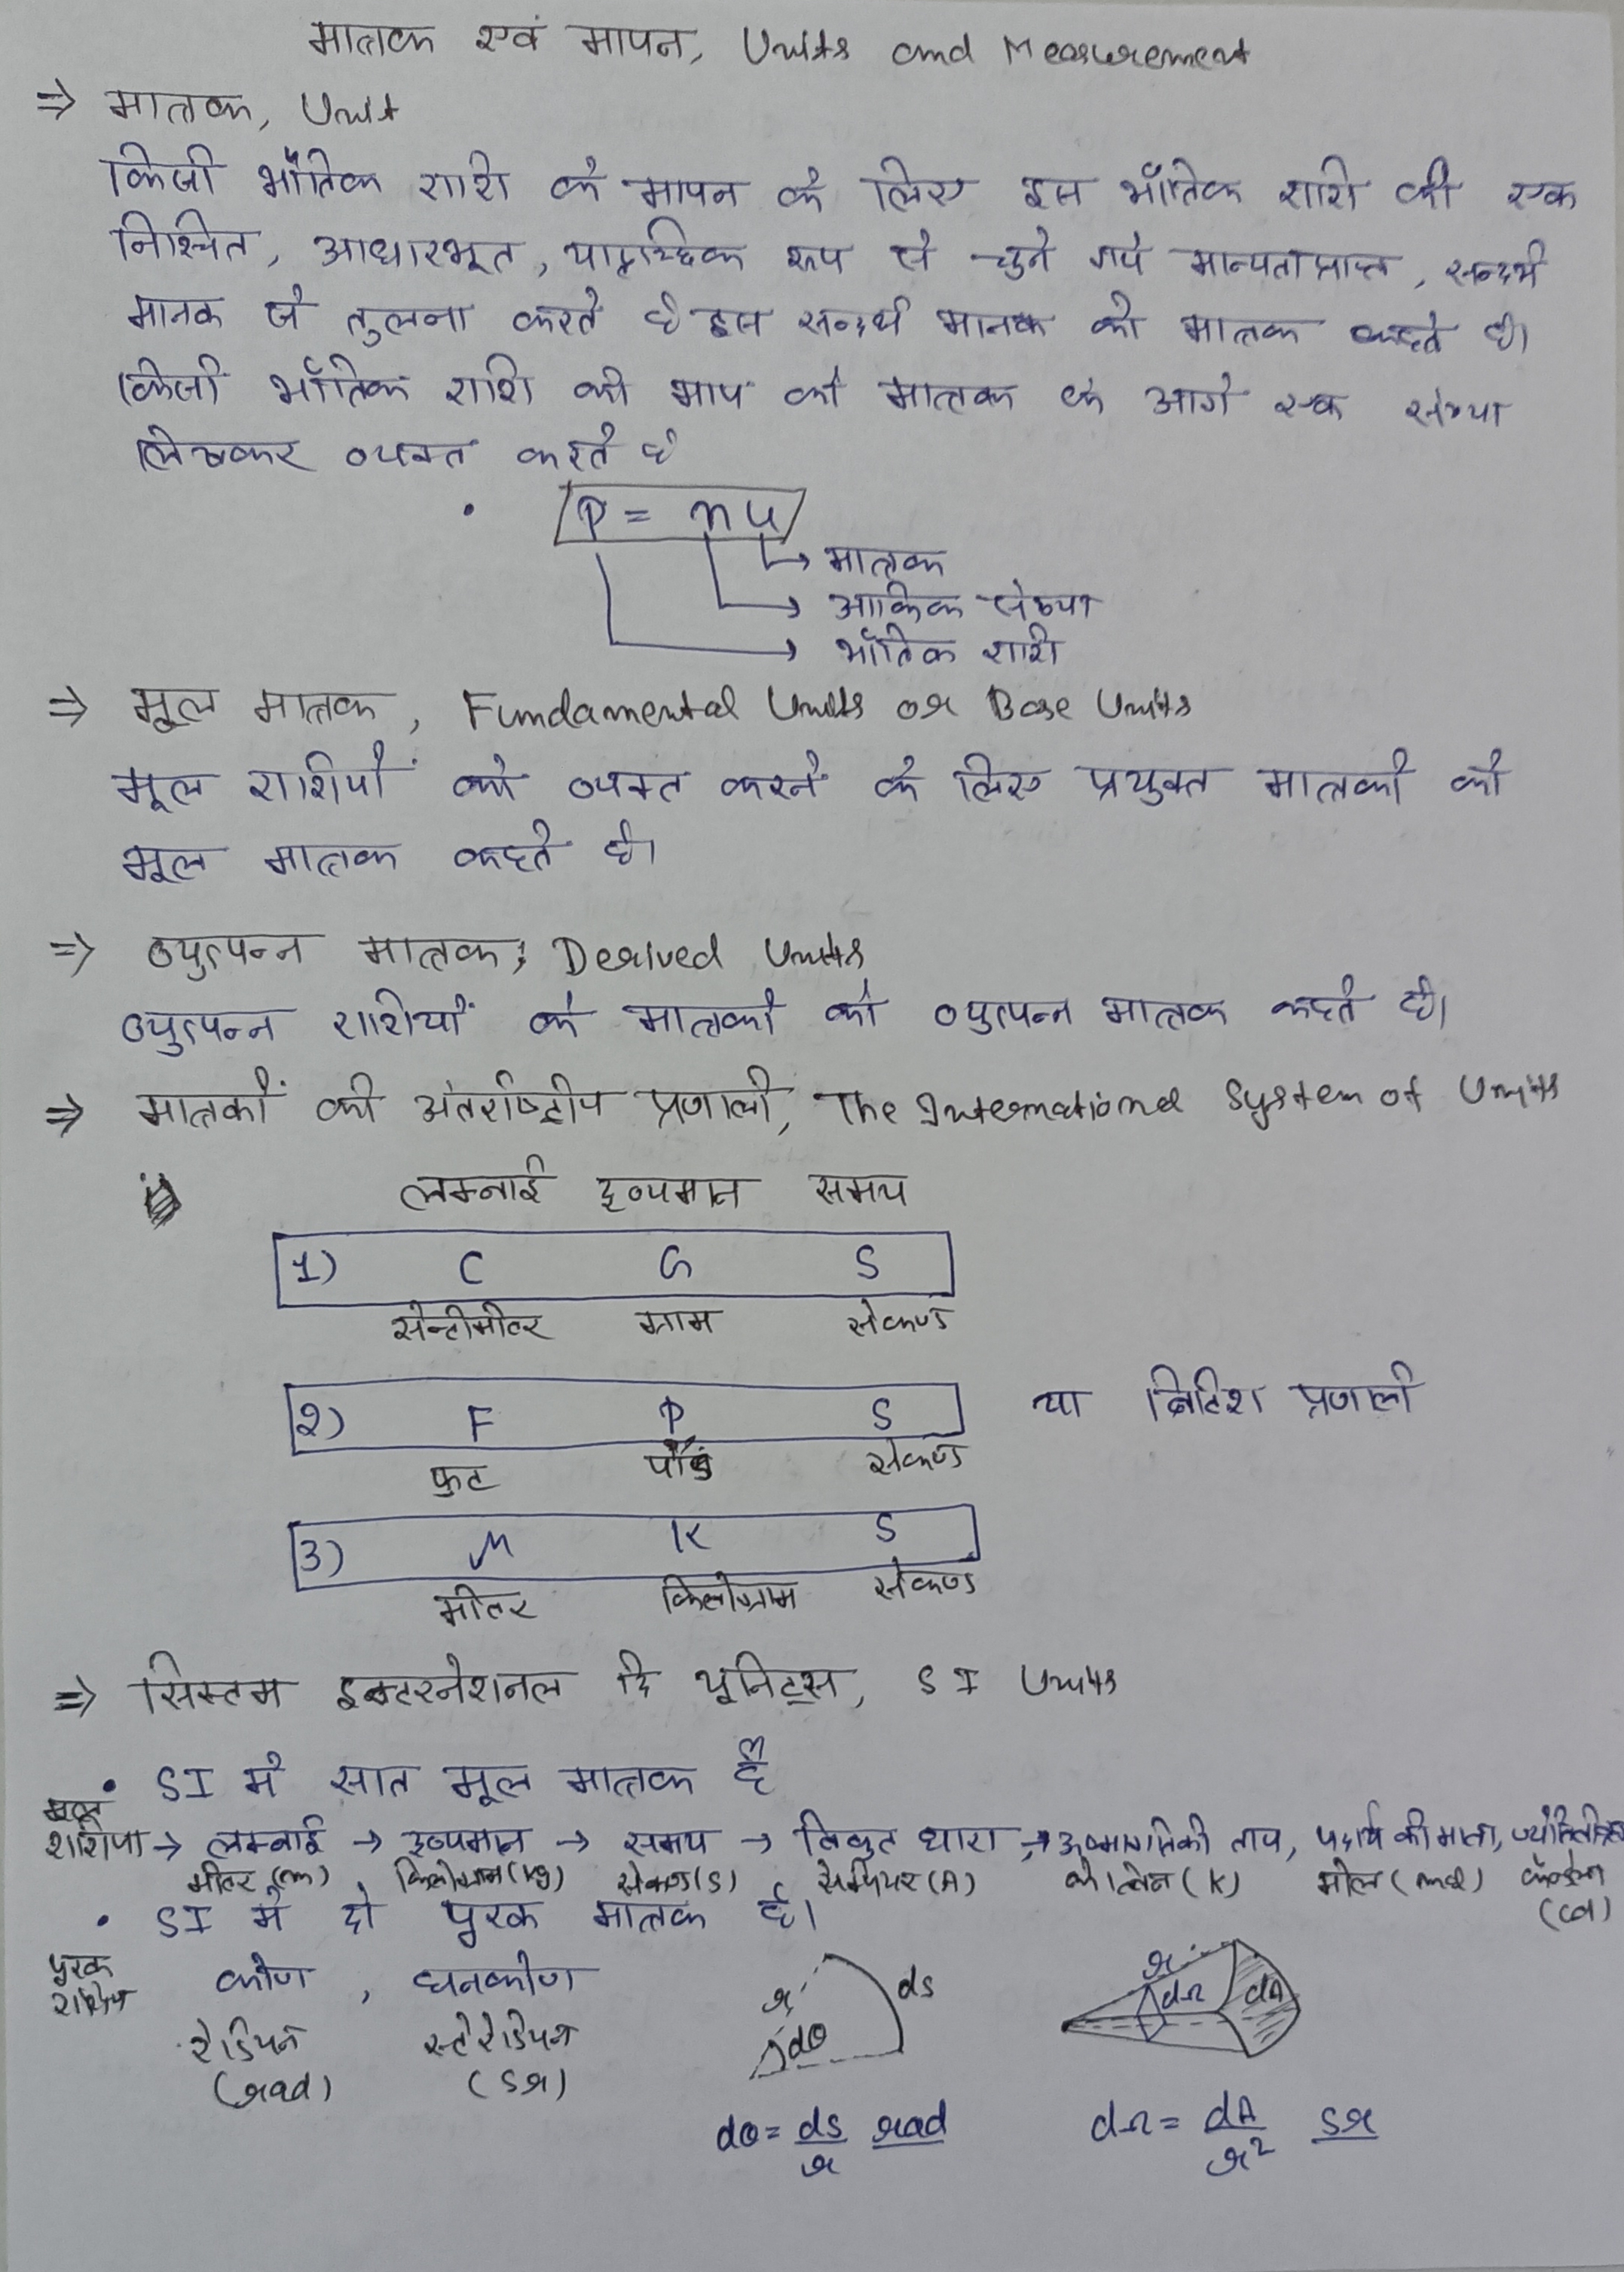 मात्रक एवं मापन, Units and Measurement
⇒ मात्रक, Unit
किसी भौतिक राशि के मापन के लिए इस भौतिक राशि की एक
निश्चित, आधारभूत, यादृच्छिक रूप से चुने गये मान्यताप्राप्त, सन्दर्भ
मानक से तुलना करते है इस सन्दर्भ मानक को मात्रक कहते है।
किसी भौतिक राशि की माप को मात्रक के आगे एक संख्या
लिखकर व्यक्त करते है
• P = nu
→ मात्रक
→ आंकिक संख्या
→ भौतिक राशि
⇒ मूल मात्रक, Fundamental Units or Base Units
मूल राशियों को व्यक्त करने के लिए प्रयुक्त मात्रकों को
मूल मात्रक कहते है।
⇒ व्युत्पन्न मात्रक, Derived Units
व्युत्पन्न राशियों के मात्रकों को व्युत्पन्न मात्रक कहते है।
⇒ मात्रकों की अंतर्राष्ट्रीय प्रणाली, The International System of Units
लम्बाई द्रव्यमान समय
1) C G S
सेन्टीमीटर ग्राम सेकण्ड
2) F P S या ब्रिटिश प्रणाली
फुट पौंड सेकण्ड
3) M K S
मीटर किलोग्राम सेकण्ड
⇒ सिस्टम इन्टरनेशनल दि यूनिट्स, SI Units
• SI में सात मूल मात्रक हैं
मूल
राशियां → लम्बाई → द्रव्यमान → समय → विद्युत धारा, → ऊष्मागतिकी ताप, पदार्थ की मात्रा, ज्योति तीव्रता
मीटर (m) किलोग्राम (kg) सेकण्ड (s) ऐम्पियर (A) केल्विन (K) मोल (mol) कैण्डेला
(cd)
• SI में दो पूरक मात्रक है।
पूरक
राशियां
कोण, घनकोण
रेडियन स्टेरेडियन
(rad) (sr)
r dθ ds
r dΩ dA
dθ = ds/r rad
dΩ = dA/r² sr